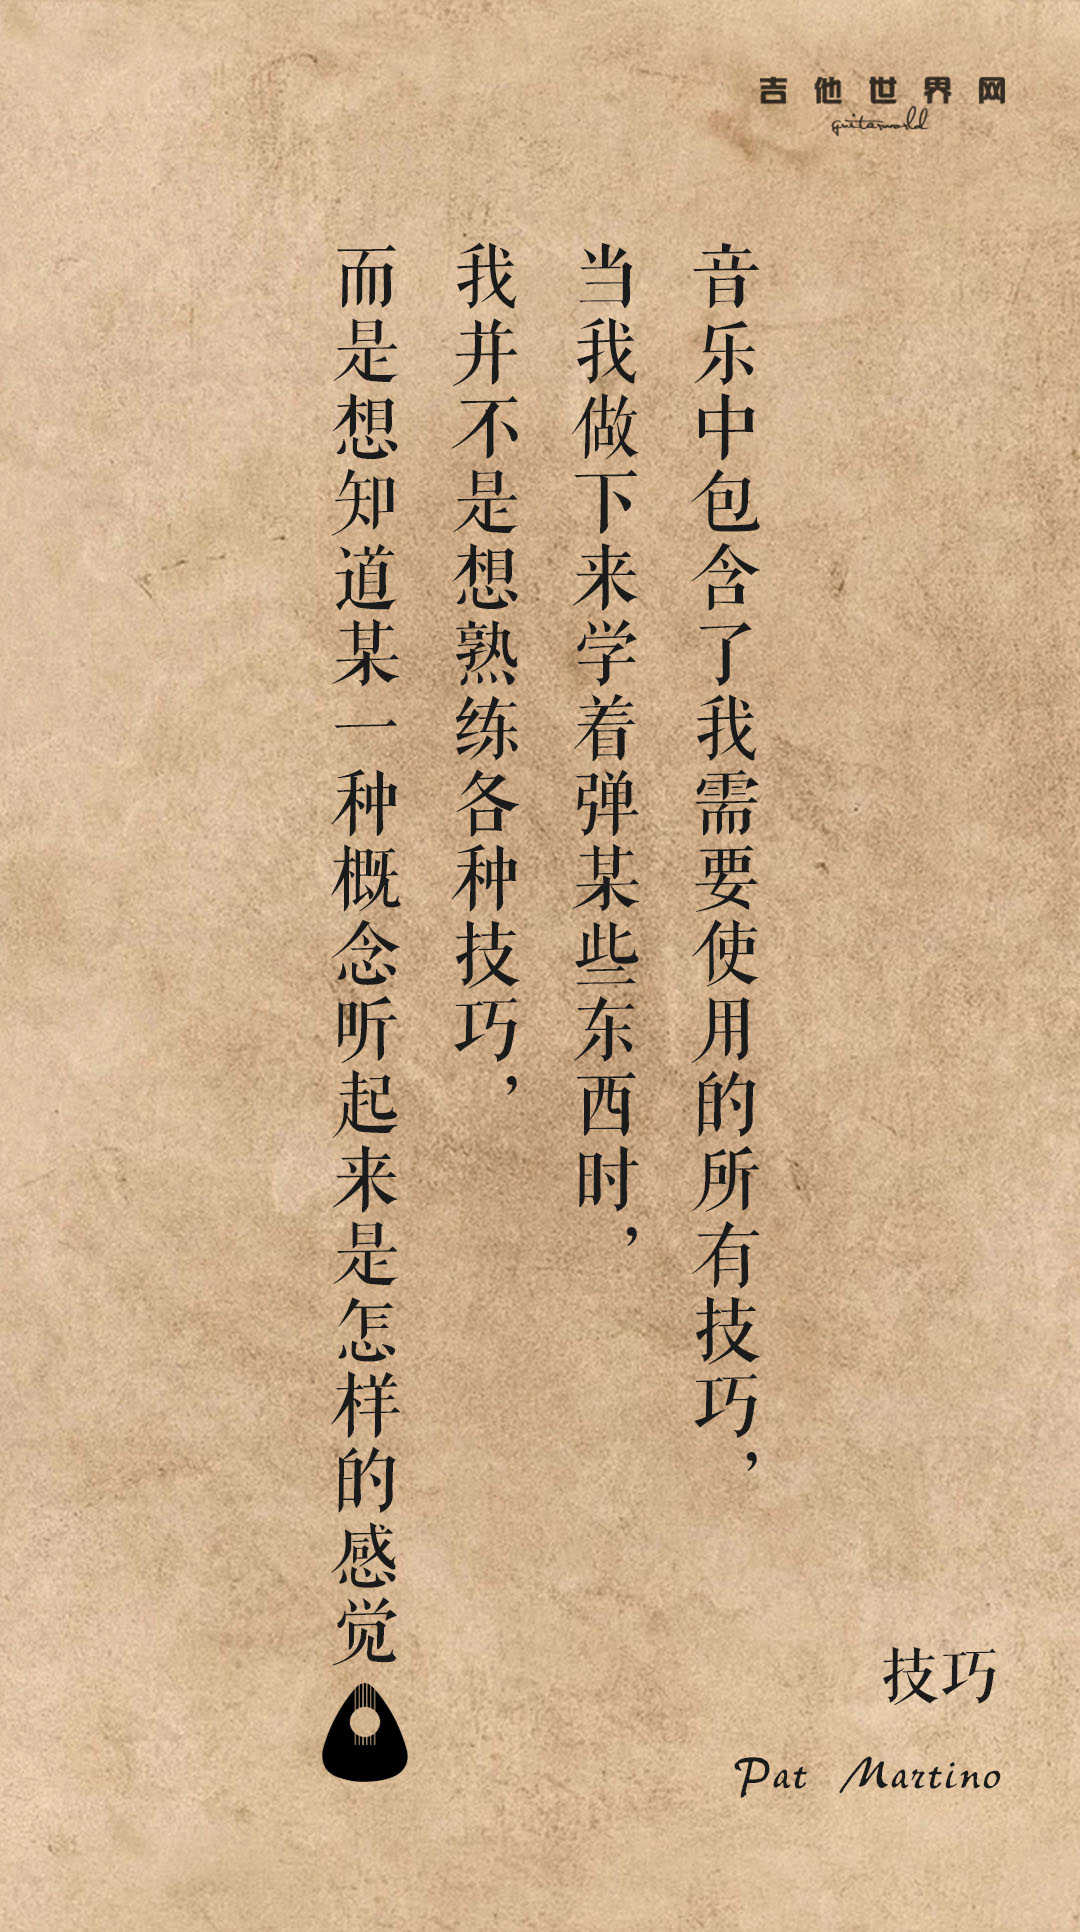 吉他世界网
guitarworld
音乐中包含了我需要使用的所有技巧，
当我做下来学着弹某些东西时，
我并不是想熟练各种技巧，
而是想知道某一种概念听起来是怎样的感觉
技巧
Pat Martino